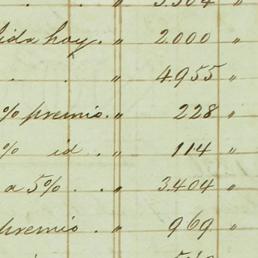 3.304 "
ida hoy. " 2.000 "
. . " 4.955 "
% premio. " 228 "
% id . " 114 "
a 5% . " 3.404 "
premio . " 969 "